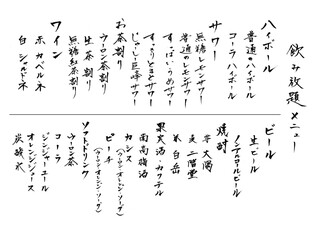 飲み放題メニュー
ハイボール
普通のハイボール
コーラハイボール
サワー
無糖レモンサワー
普通のレモンサワー
すっぱいうめサワー
すっきりトマトサワー
じゅーし巨峰サワー
お茶割り
ウーロン茶割り
生茶割り
無糖紅茶割り
ワイン
赤 カベルネ
白 シャルドネ
ビール
生ビール
ノンアルコールビール
焼酎
芋 大隅
麦 二階堂
米 白岳
果実酒・カクテル
南高梅酒
カシス
(ウーロン・オレンジ・ソーダ)
ピーチ
(ウーロン・オレンジ・ソーダ)
ソフトドリンク
ウーロン茶
コーラ
ジンジャーエール
オレンジジュース
炭酸水